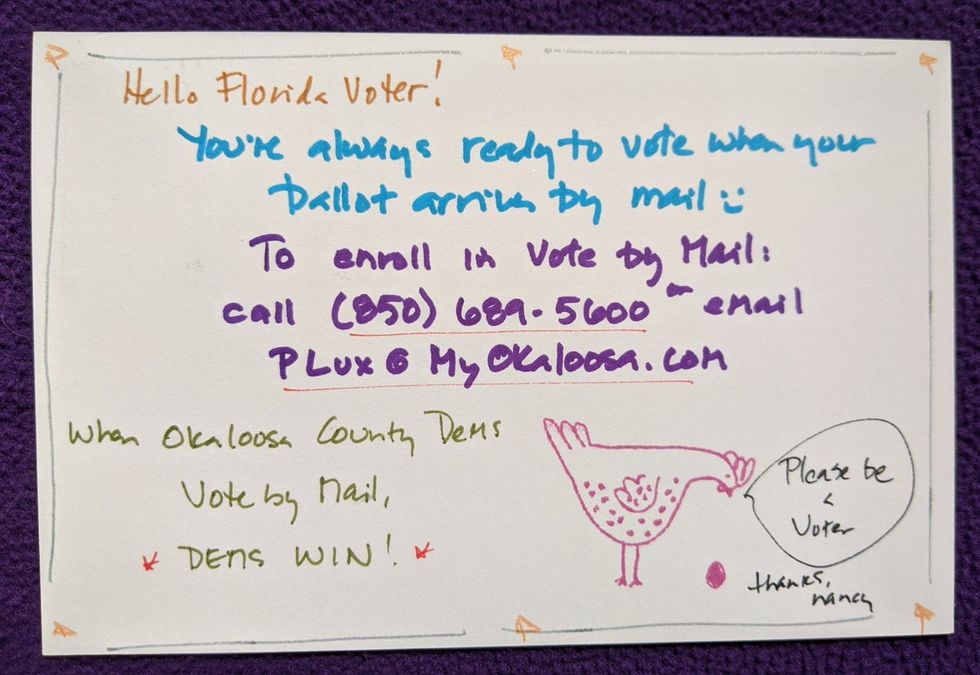 Hello Florida Voter!
You're always ready to vote when your
ballot arrives by mail :)
To enroll in Vote by Mail:
call (850) 689-5600 or email
PLux@MyOkaloosa.com
When Okaloosa County Dems
Vote by Mail,
DEMS WIN!
Please be
a
Voter
thanks,
nancy